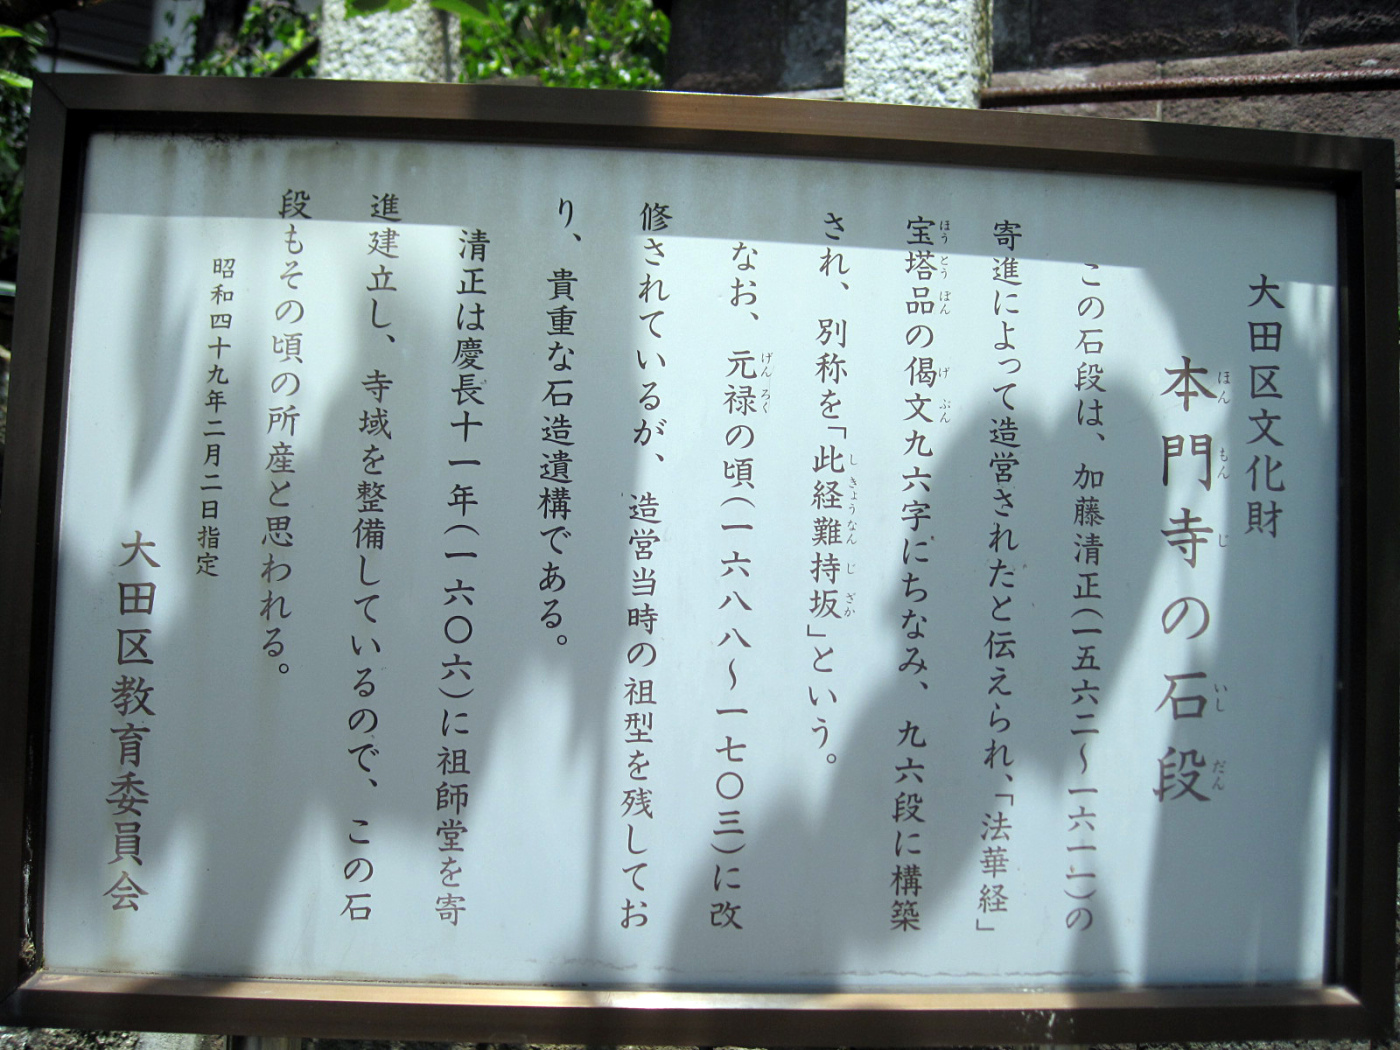 大田区文化財
本門寺の石段
この石段は、加藤清正(一五六二〜一六一一)の
寄進によって造営されたと伝えられ、「法華経」
宝塔品の偈文九六字にちなみ、九六段に構築
され、別称を「此経難持坂」という。
なお、元禄の頃(一六八八〜一七〇三)に改
修されているが、造営当時の祖型を残してお
り、貴重な石造遺構である。
清正は慶長十一年(一六〇六)に祖師堂を寄
進建立し、寺域を整備しているので、この石
段もその頃の所産と思われる。
昭和四十九年二月二日指定
大田区教育委員会